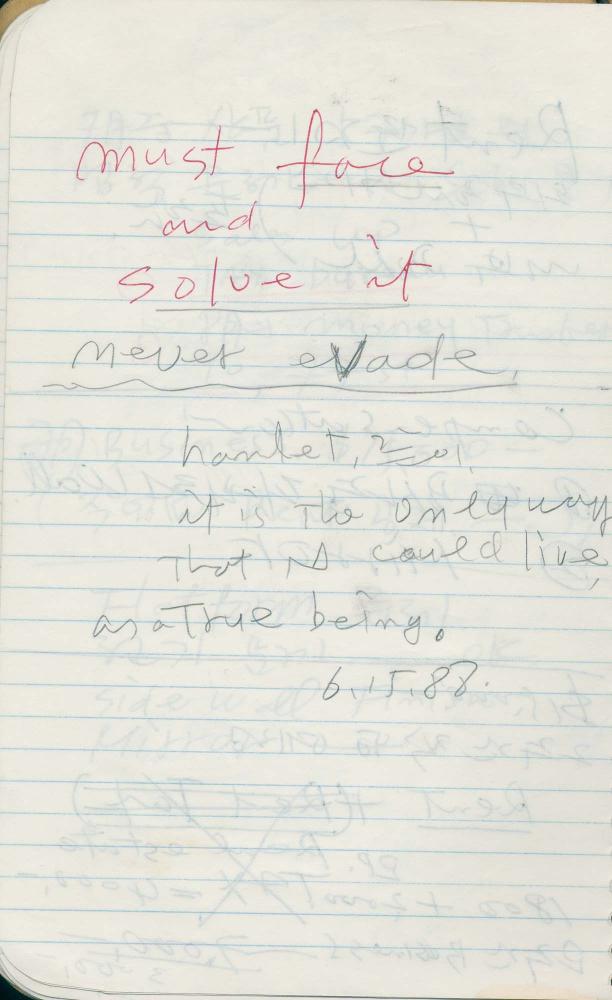 must face
and
solve it
never evade,
hamlet,
it is The only way
That N could live,
as a True being.
6.15.88.